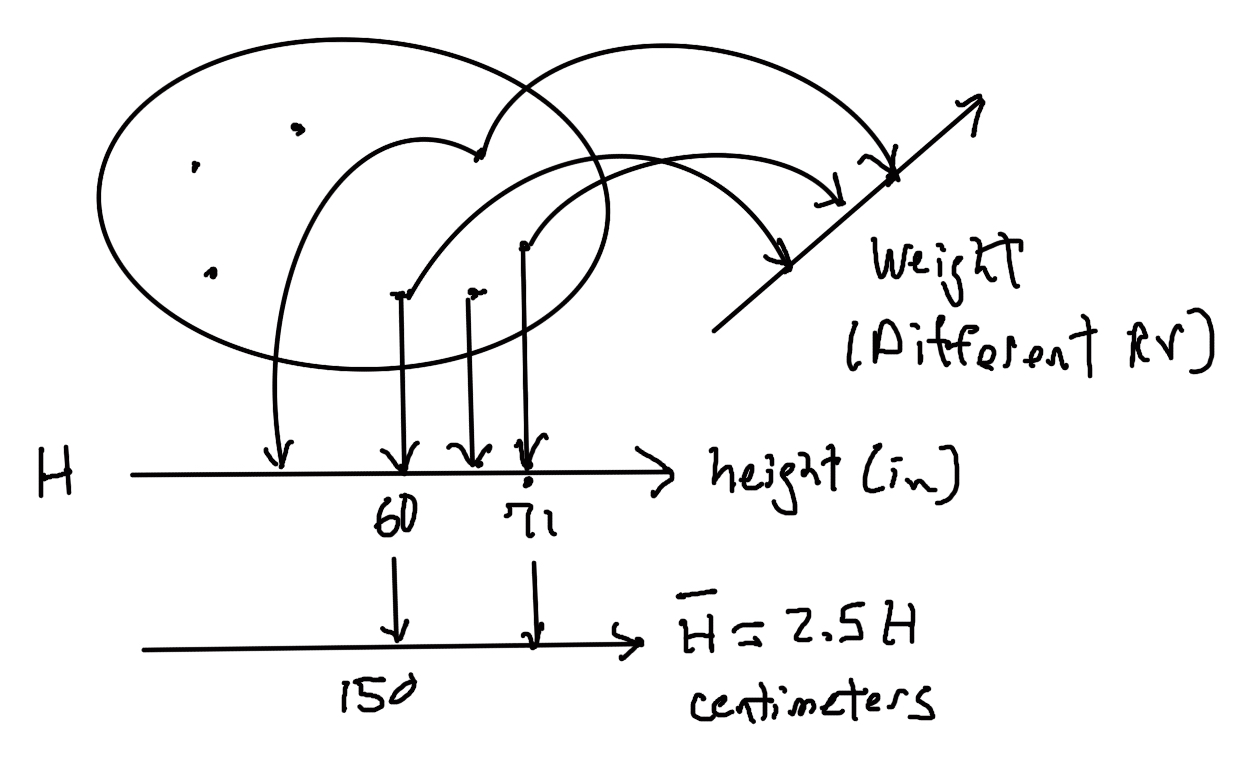 Weight
(Different RV)
H
height (in)
60
71
H̅ = 2.5 H
150
centimeters